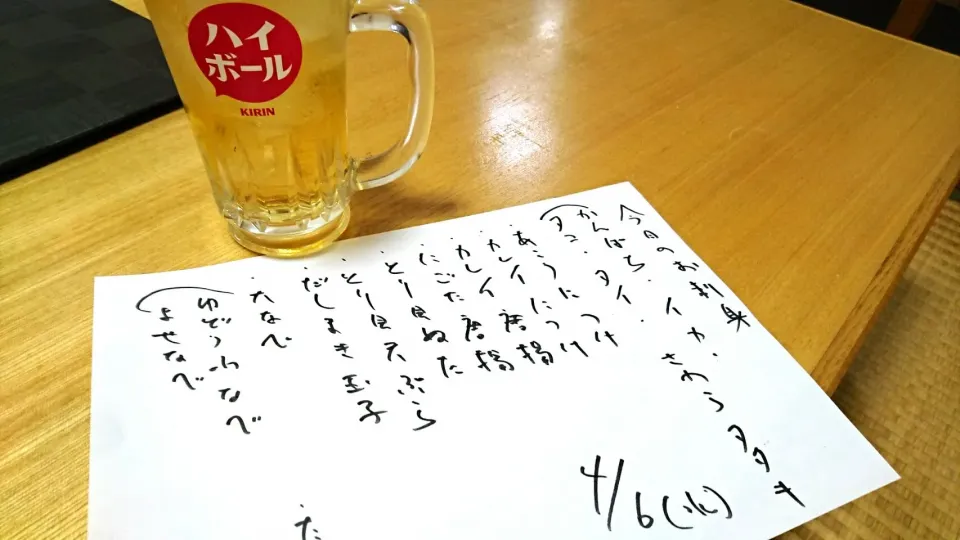 ハイ
ボール
KIRIN
今日のお刺身
かんぱち・イカ・さわらタタキ
タコ・タイ・
・あこうにつけ
・カレイ
・カレイ唐揚
・とり貝天ぷら
・だしまき玉子
なべ
ゆどうふなべ
よせなべ
4/6(水)
・た